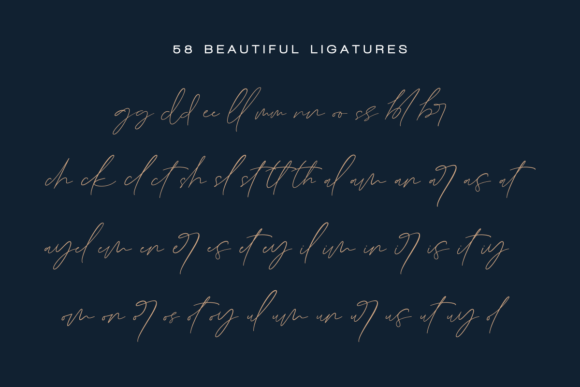 58 BEAUTIFUL LIGATURES
gg dd ee ll mm nn oo ss bl br
ch ck cl ct sh sl st tt th al am an ar as at
ay el em en er es et ey il im in ir is it iy
om on or os ot oy ul um un ur us ut uy d